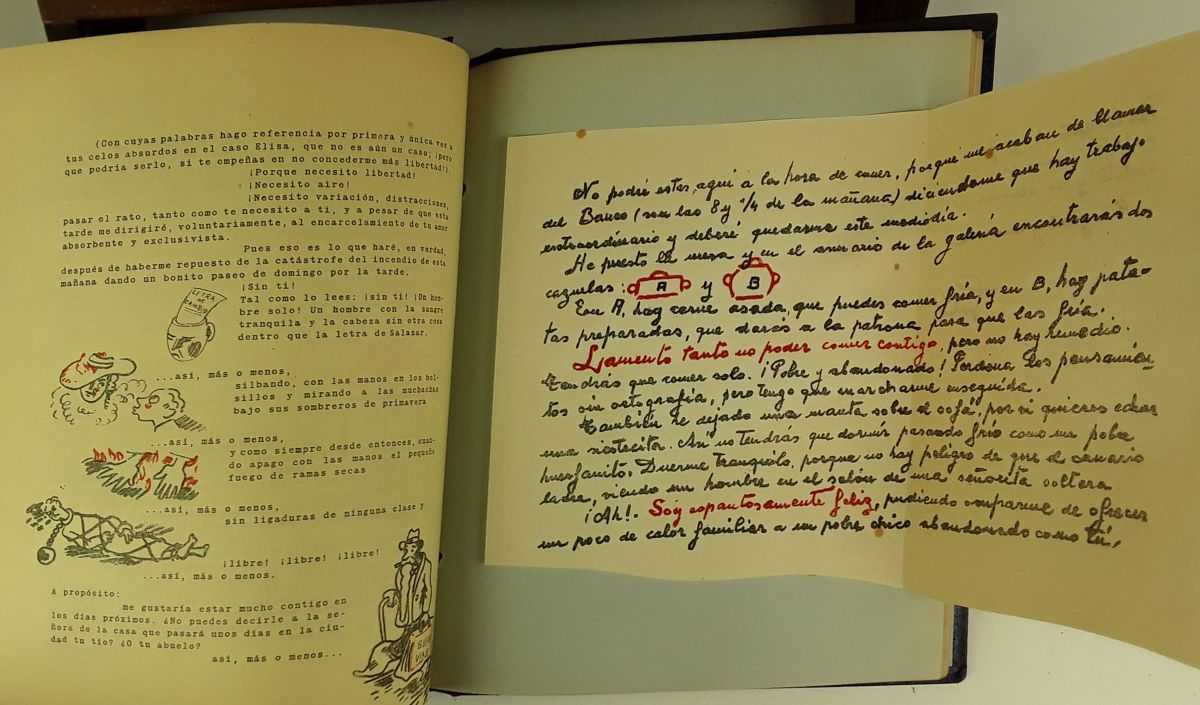 (Con cuyas palabras hago referencia por primera y única vez a
tus celos absurdos en el caso Elisa, que no es aún un caso; ¡pero
que podría serlo, si te empeñas en no concederme más libertad!)
¡Porque necesito libertad!
¡Necesito aire!
¡Necesito variación, distracciones,
pasar el rato, tanto como te necesito a ti, y a pesar de que esta
tarde me dirigiré, voluntariamente, al encarcelamiento de tu amor
absorbente y exclusivista.
Pues eso es lo que haré, en verdad,
después de haberme repuesto de la catástrofe del incendio de esta
mañana dando un bonito paseo de domingo por la tarde.
¡Sin ti!
Tal como lo lees: ¡sin ti! ¡Un hom-
bre solo! Un hombre con la sangre
tranquila y la cabeza sin otra cosa
dentro que la letra de Salazar.
LETRA
DE
CAMBIO
...así, más o menos,
silbando, con las manos en los bol-
sillos y mirando a las muchachas
bajo sus sombreros de primavera
...así, más o menos,
y como siempre desde entonces, cuan-
do apago con las manos el pequeño
fuego de ramas secas
...así, más o menos,
sin ligaduras de ninguna clase y
¡libre! ¡libre! ¡libre!
...así, más o menos.
A propósito:
me gustaría estar mucho contigo en
los días próximos. ¿No puedes decirle a la se-
ñora de la casa que pasará unos días en la ciu-
dad tu tío? ¿O tu abuelo?
así, más o menos...
No podré estar aquí a la hora de comer, porque me acaban de llamar
del Banco (son las 8 y 1/4 de la mañana) diciéndome que hay trabajo
extraordinario y deberé quedarme este mediodía.
He puesto la mesa y en el armario de la galería encontrarás dos
cazuelas: A y B
En A, hay carne asada, que puedes comer fría, y en B, hay pata-
tas preparadas, que darás a la patrona para que las fría.
Lamento tanto no poder comer contigo, pero no hay remedio.
Tendrás que comer solo. ¡Pobre y abandonado! Perdona los pensamien-
tos sin ortografía, pero tengo que marcharme enseguida.
También he dejado una manta sobre el sofá, por si quieres echar
una siestecita. Así no tendrás que dormir pasando frío como un pobre
huerfanito. Duerme tranquilo, porque no hay peligro de que el canario
ladre, viendo un hombre en el salón de una señorita soltera
¡Ah!. Soy espantosamente feliz, pudiendo ufanarme de ofrecer
un poco de calor familiar a un pobre chico abandonado como tú,